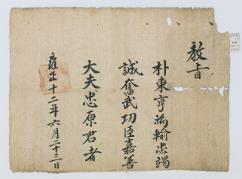 教旨
朴東亨為輸忠竭
誠奮武功臣嘉善
大夫忠原君者
雍正十二年六月二十三日